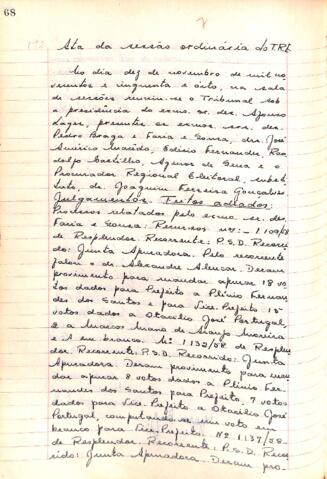 68
Ata da sessão ordinária do TRE
No dia dez de novembro de mil no-
vecentos e cinquenta e oito, na sala
de sessões reuniu-se o Tribunal sob
a presidência do exmo. sr. des. Afonso
Lages, presentes os exmos. srs. des.
Pedro Braga e Faria e Sousa, drs. José
Américo Macêdo, Edésio Fernandes,
dolfo Castilho, Agenor de Sena e o
Procurador Regional Eleitoral, substi-
tuto, dr. Joaquim Ferreira Gonçalves.
Julgamentos. Feitos adiados:
Processos relatados pelo exmo. sr. des.
Faria e Sousa: Recursos nºs: - 1.109/58
de Resplendor. Recorrente: P.S.D. Recorri-
do: Junta Apuradora. Pelo recorrente
falou o dr. Alexandre Alencar. Deram
provimento para mandar apurar 18 vo-
tos dados para Prefeito a Plínio Fernan-
des dos Santos e para Vice-Prefeito 15
votos dados a Otacílio José Portugal,
2 a Marcos de Araujo Moreira
e 1 em branco. Nº 1132/58 de Resplen-
dor. Recorrente: P.S.D. Recorrido: Junta
Apuradora. Deram provimento para man-
dar apurar 8 votos dados a Plínio Fer-
nandes dos Santos para Prefeito, 7 votos
dados para Vice-Prefeito a Otacílio José
Portugal, computando-se um voto em
branco para Vice-Prefeito. Nº 1137/58-
de Resplendor. Recorrente: P.S.D. Recor-
rido: Junta Apuradora. Deram pro-